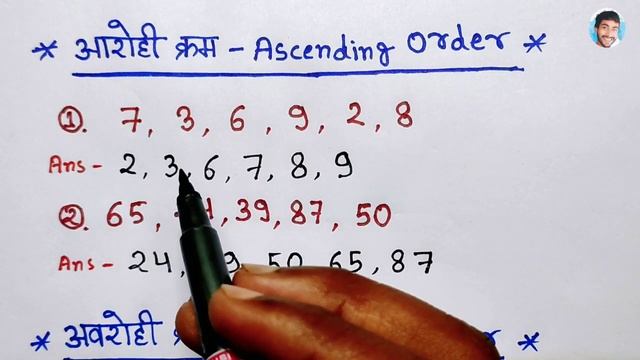 * आरोही क्रम - Ascending Order *
①. 7, 3, 6, 9, 2, 8
Ans - 2, 3, 6, 7, 8, 9
②. 65, 39, 87, 50
Ans - 24, 50, 65, 87
* अवरोही *